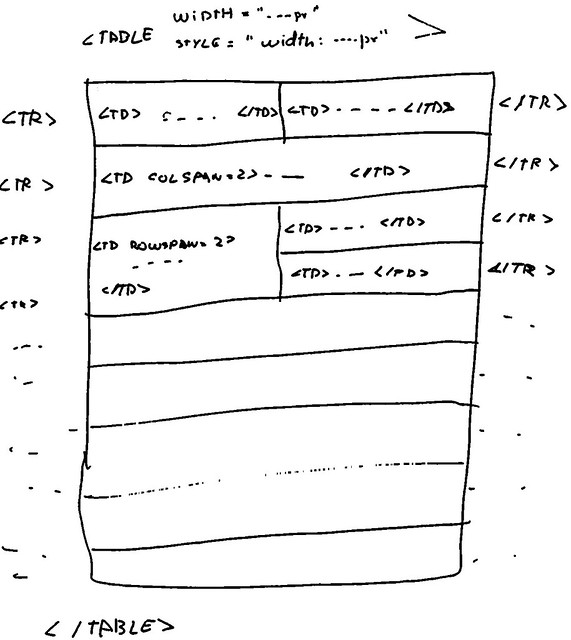 WIDTH = "----px"
<TABLE STYLE = "width: ----px" >
<TR> <TD> ---- </TD> <TD> ---- </TD> </TR>
<TR> <TD COLSPAN=2> --- </TD> </TR>
<TR> <TD ROWSPAN=2> <TD> --- </TD> </TR>
----
<TR> </TD> <TD> -- </TD> </TR>
</TABLE>